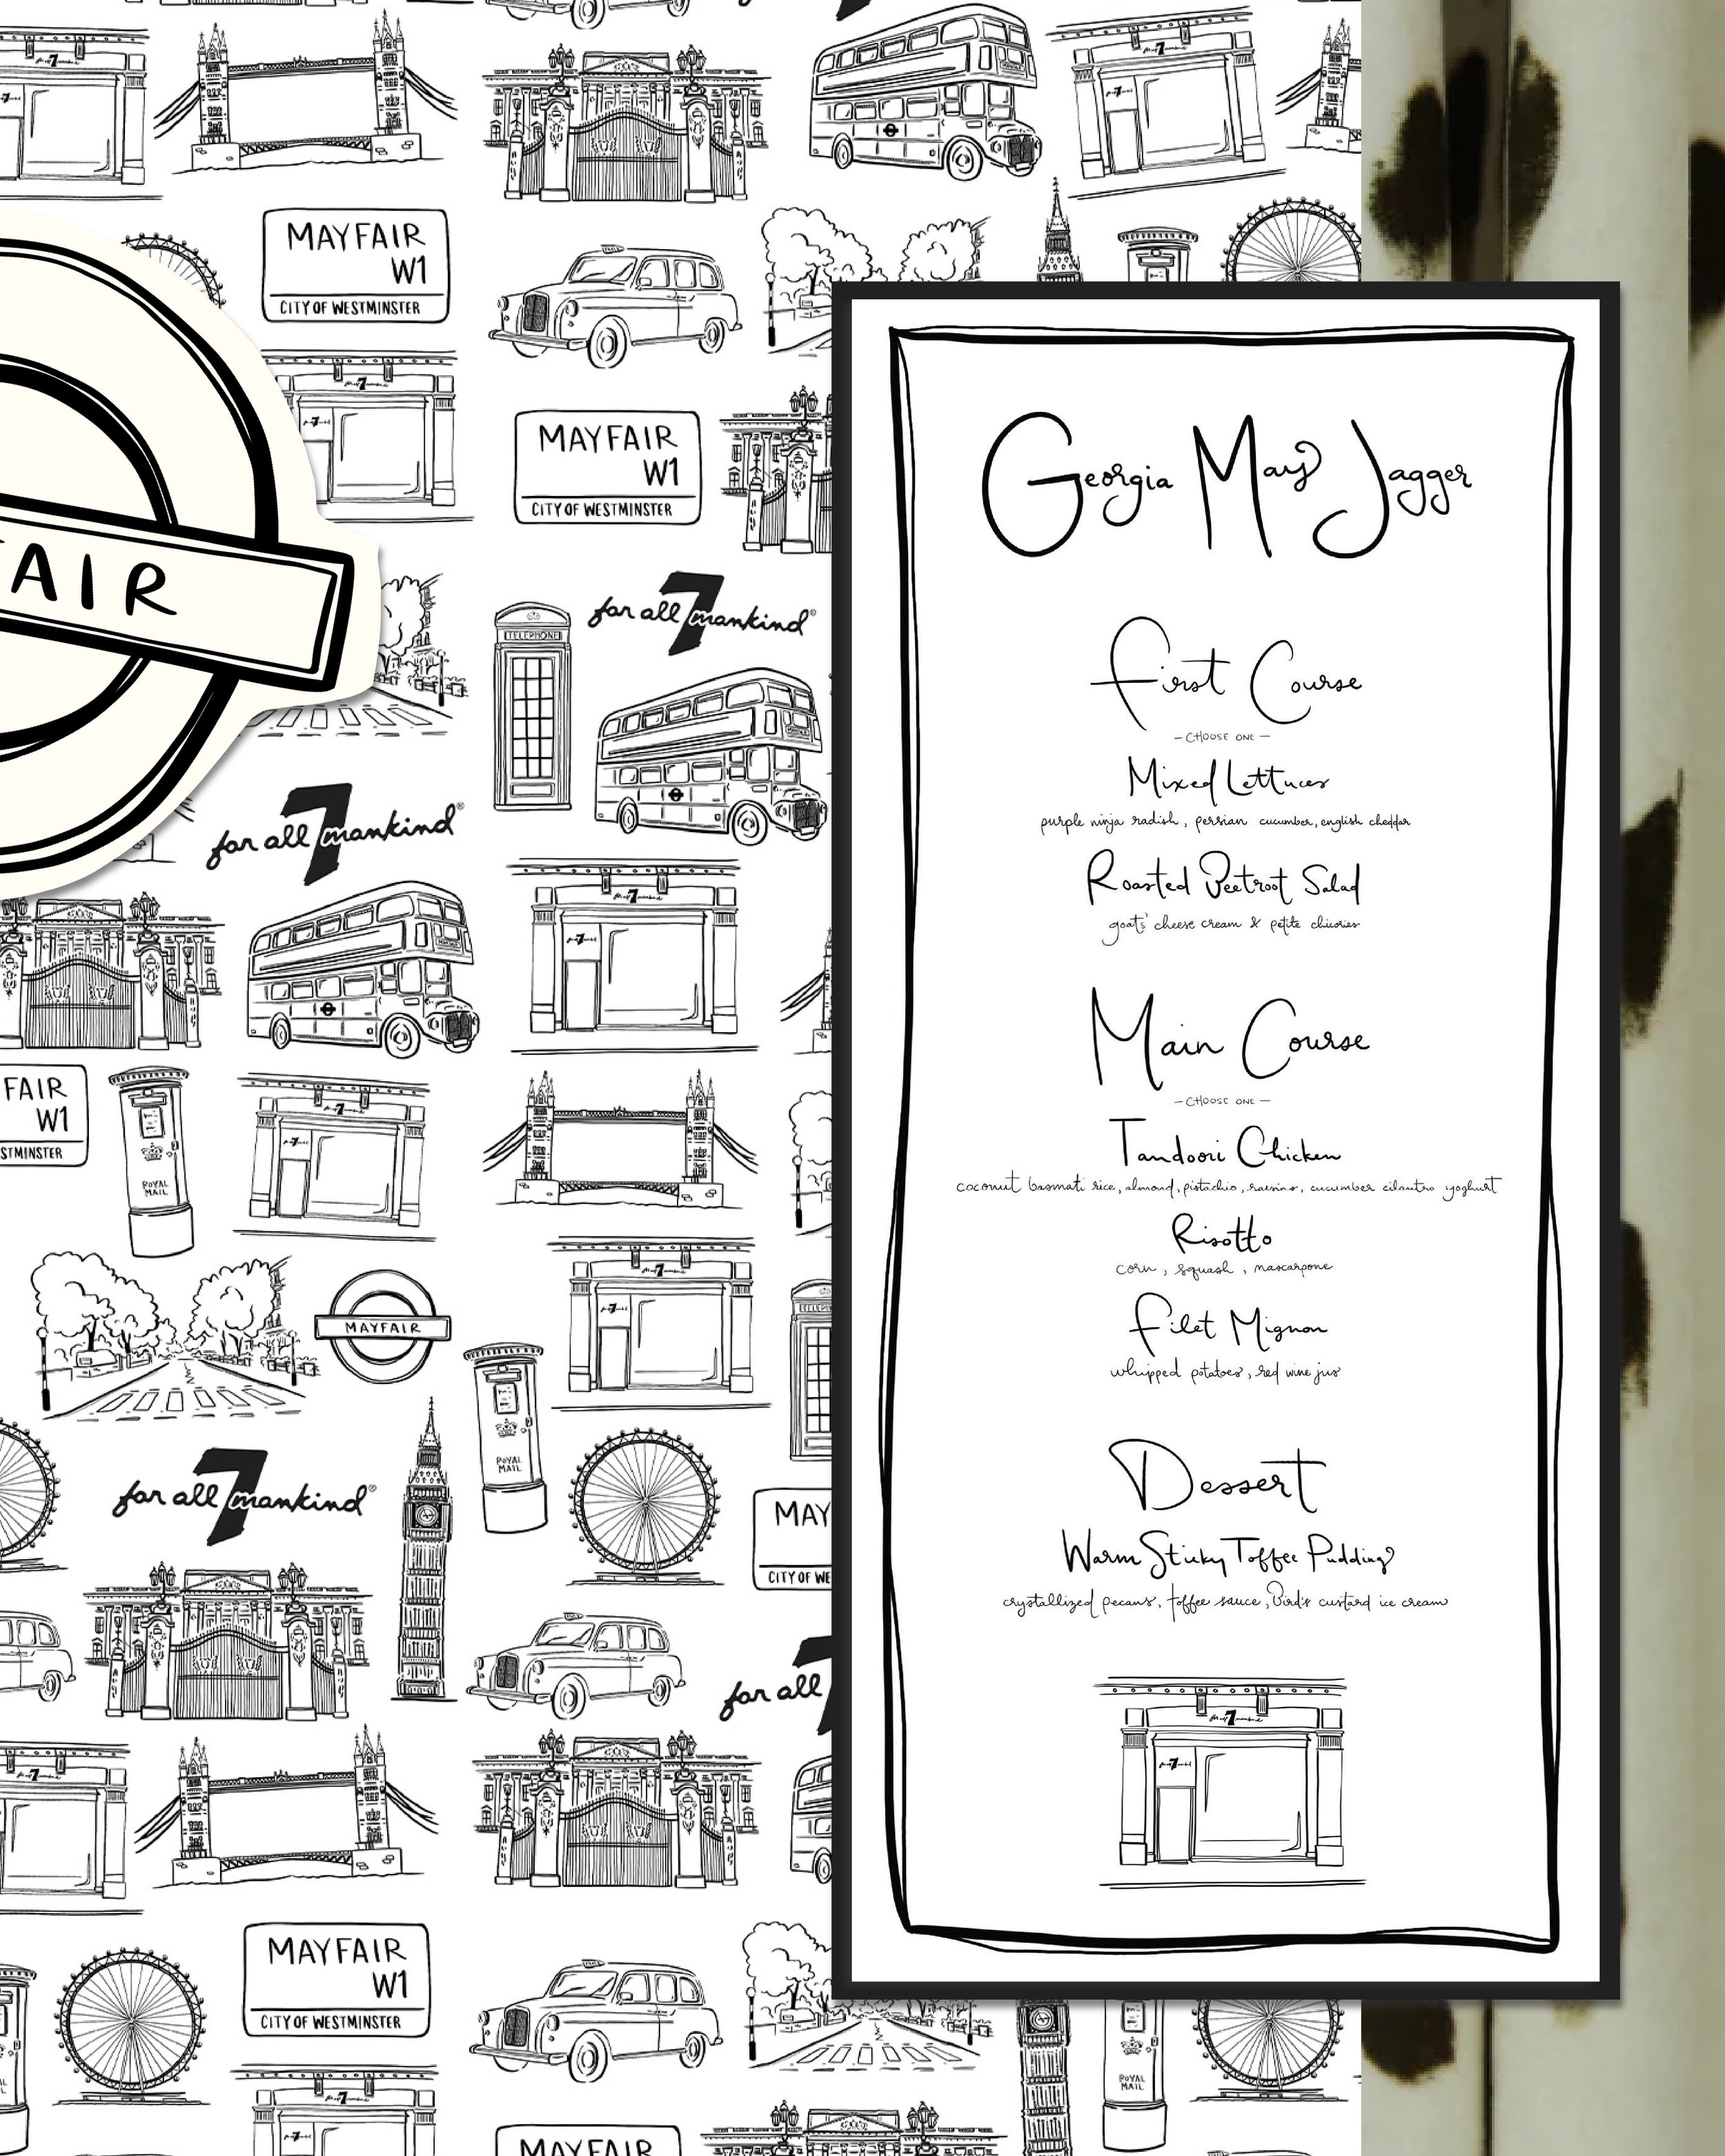 MAYFAIR
W1
CITY OF WESTMINSTER
MAYFAIR
W1
CITY OF WESTMINSTER
FAIR
for all 7 mankind®
TELEPHONE
for all 7 mankind®
FAIR
W1
STMINSTER
ROYAL
MAIL
MAYFAIR
ROYAL
MAIL
for all 7 mankind®
MAY
CITY OF WE
for all 7
MAYFAIR
W1
CITY OF WESTMINSTER
ROYAL
MAIL
MAYFAIR
Georgia May Jagger
First Course
— CHOOSE ONE —
Mixed Lettuces
purple ninja radish, persian cucumber, english cheddar
Roasted Beetroot Salad
goats' cheese cream & petite chicories
Main Course
— CHOOSE ONE —
Tandoori Chicken
coconut basmati rice, almond, pistachio, raisins, cucumber cilantro yoghurt
Risotto
corn, squash, mascarpone
Filet Mignon
whipped potatoes, red wine jus
Dessert
Warm Sticky Toffee Pudding
crystallized pecans, toffee sauce, Bird's custard ice cream
for all 7 mankind